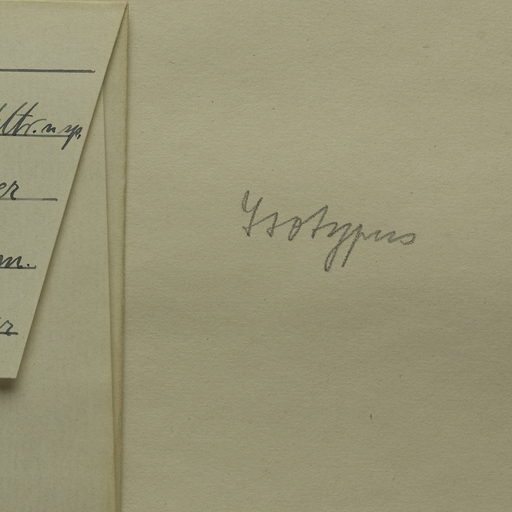 n. sp.
er
m.
Isotypus